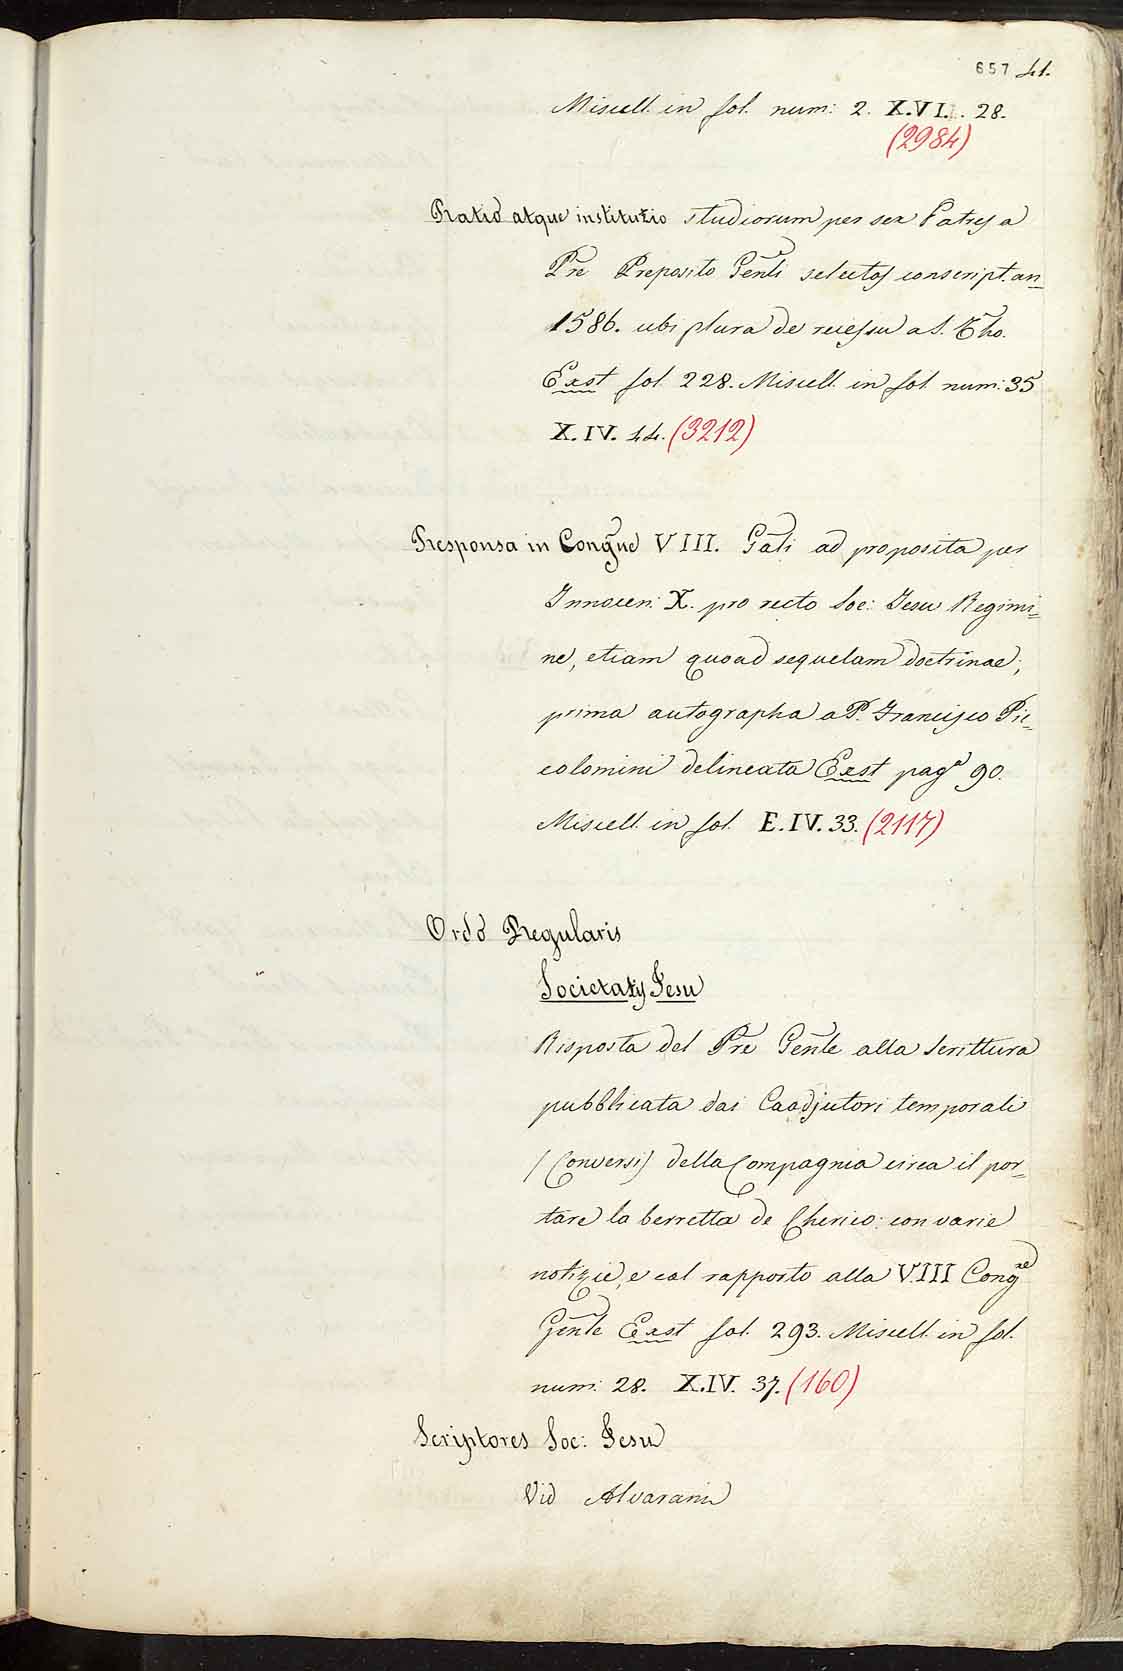 657 41.
Miscell. in fol. num: 2. X.VI. . 28.
(2984)
Ratio atque institutio studiorum per sex Patres a
Pre Preposito Genli selectos conscript. an=
1586. ubi plura de recessu a S. Tho.
Exst fol. 228. Miscell. in fol. num: 35
X. IV. 44. (3212)
Responsa in Congne VIII. Gali ad proposita per
Innocen: X. pro recto Soc: Jesu Regimi=
ne, etiam quoad sequelam doctrinae;
prima autographa a P. Francisco Pic=
colomini delineata Exst paga 90.
Miscell. in fol. E. IV. 33. (2117)
Ordo Regularis
Societatis Jesu
Risposta del Pre Genle alla Scrittura
pubblicata dai Coadjutori temporali
(Conversi) della Compagnia circa il por=
tare la berretta de Cherico: con varie
notizie, e col rapporto alla VIII Congne
Genle Exst fol. 293. Miscell. in fol.
num: 28. X.IV. 37. (160)
Scriptores Soc: Jesu
Vid